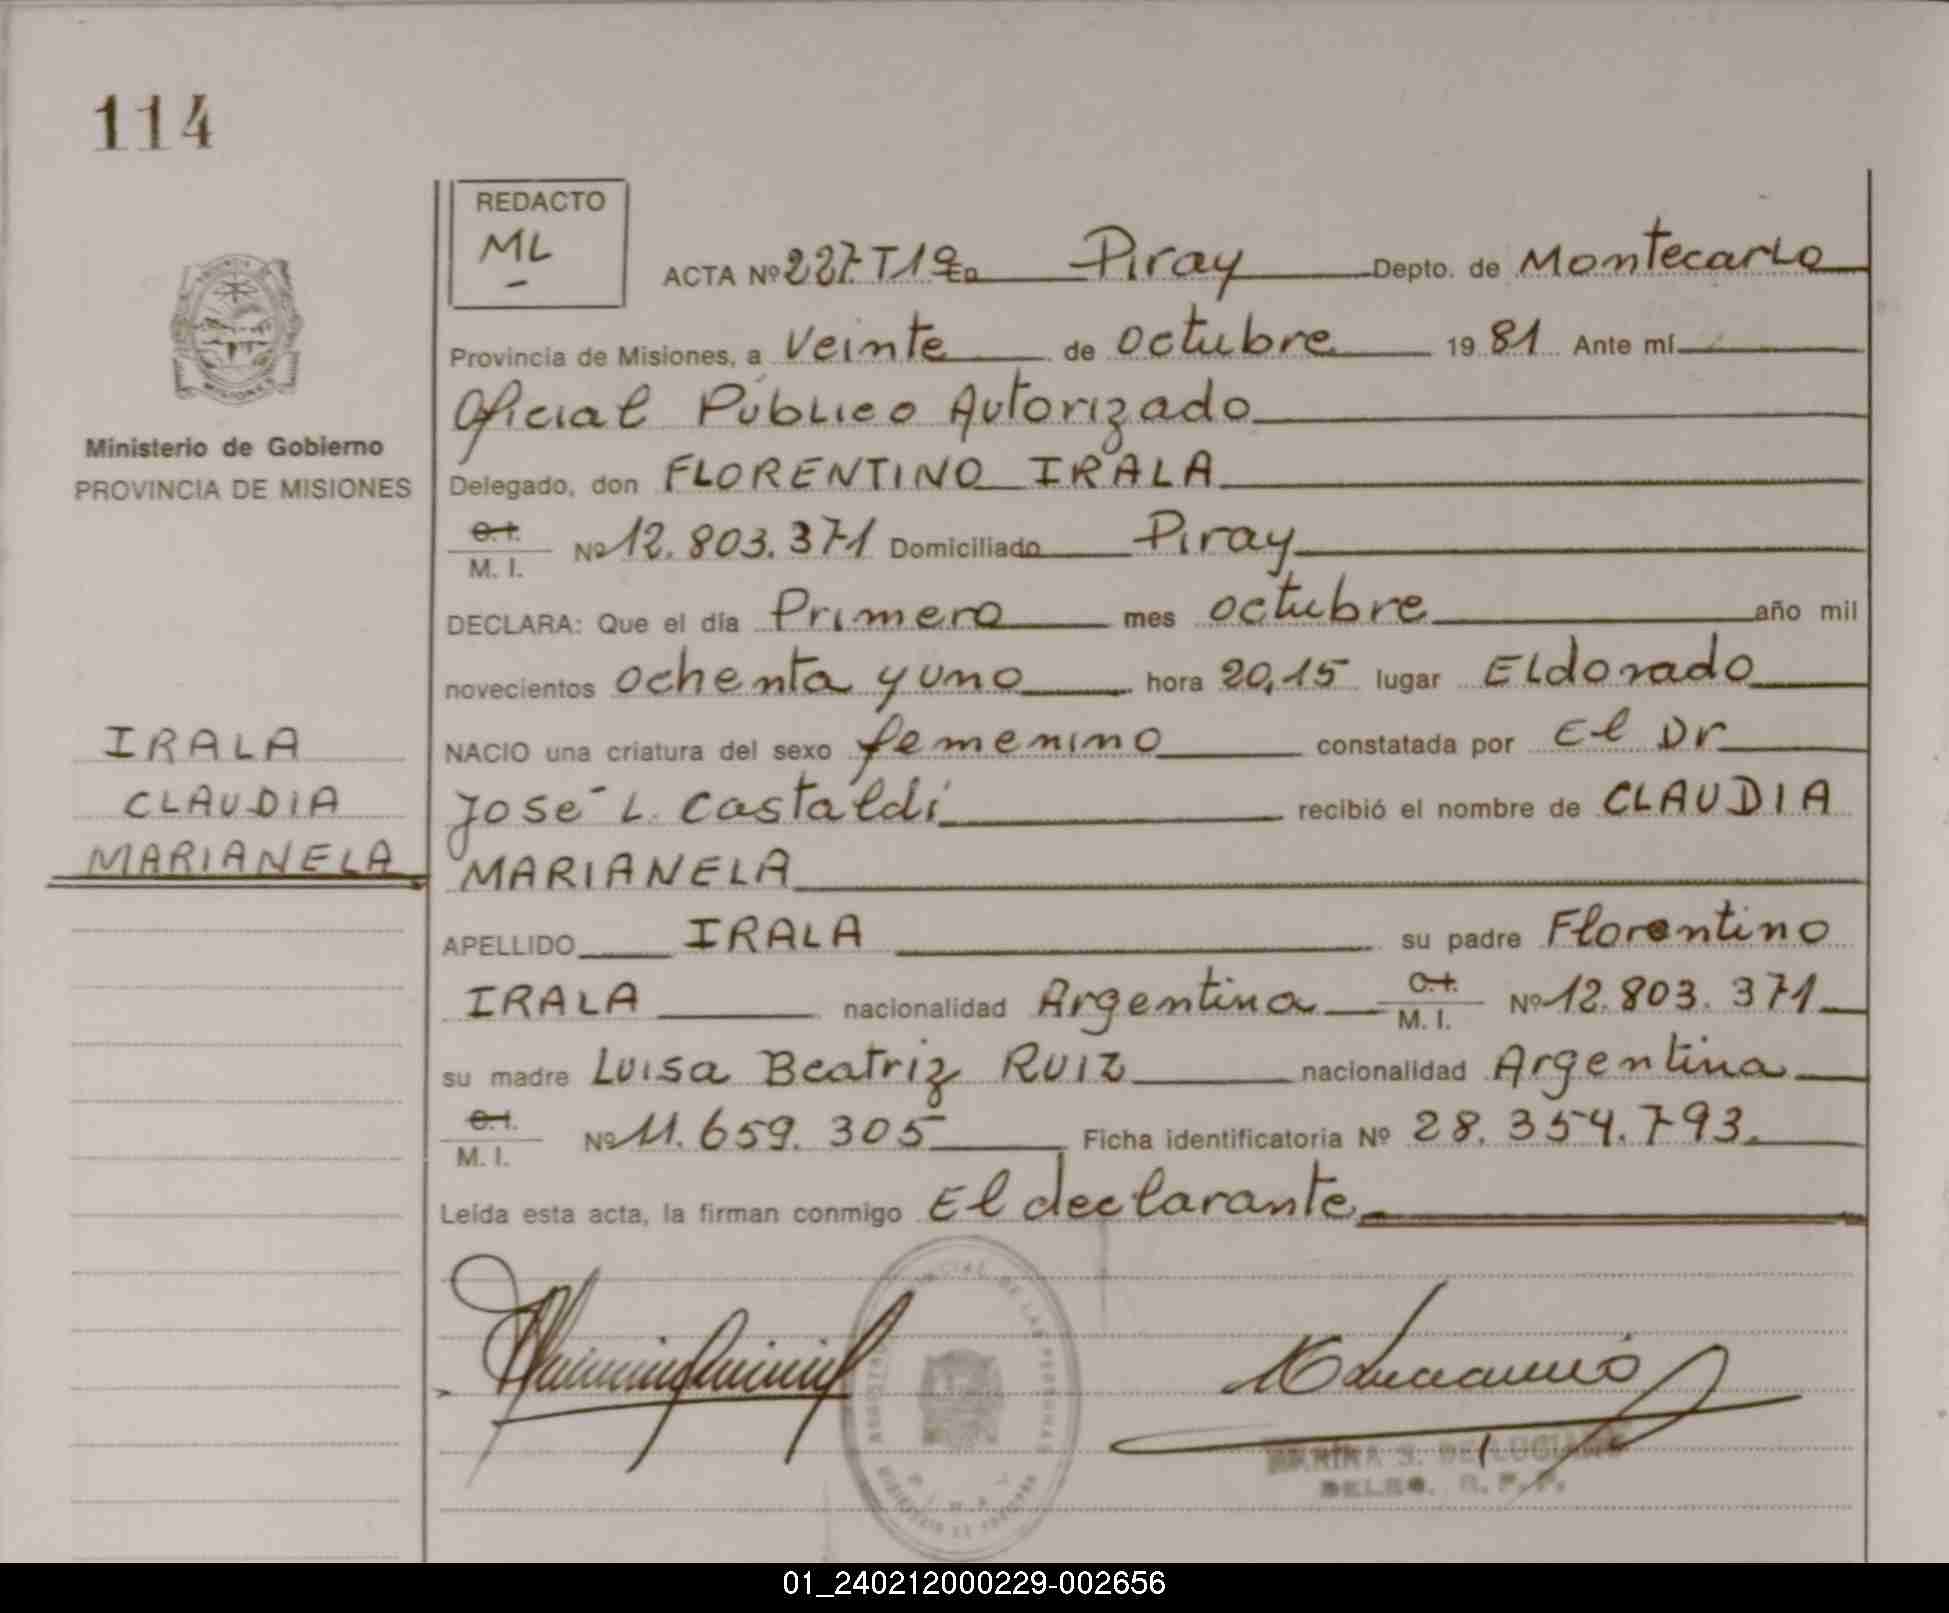 114
REDACTO
ML
ACTA Nº 227. T1º En Piray Depto. de Montecarlo
Provincia de Misiones, a Veinte de octubre 19 81 Ante mí
Oficial Público Autorizado
Ministerio de Gobierno
PROVINCIA DE MISIONES
Delegado, don FLORENTINO IRALA
C.I.
M. I. Nº 12.803.371 Domiciliado Piray
DECLARA: Que el día Primero mes octubre año mil
novecientos ochenta y uno hora 20,15 lugar Eldorado
IRALA
CLAUDIA
MARIANELA
NACIO una criatura del sexo femenino constatada por El Dr
José L. Castaldi recibió el nombre de CLAUDIA
MARIANELA
APELLIDO IRALA su padre Florentino
IRALA nacionalidad Argentina C.I. M. I. Nº 12.803.371
su madre Luisa Beatriz Ruiz nacionalidad Argentina
C.I.
M. I. Nº 11.659.305 Ficha identificatoria Nº 28.354.793.
Leída esta acta, la firman conmigo El declarante
DE LAS PERSONAS
S. DE LUCIANO
DELEG. R. P. P.
01_240212000229-002656